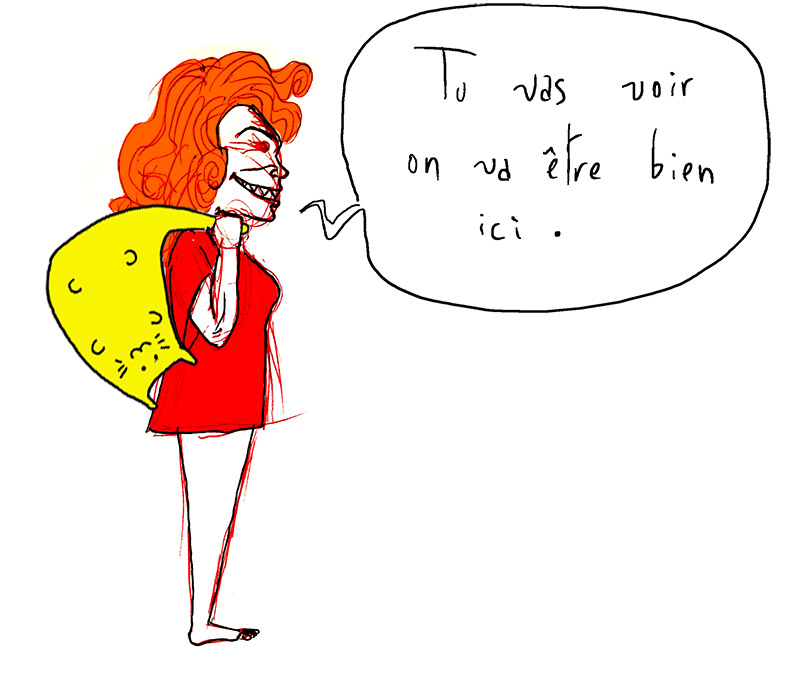 Tu vas voir
on va être bien
ici .